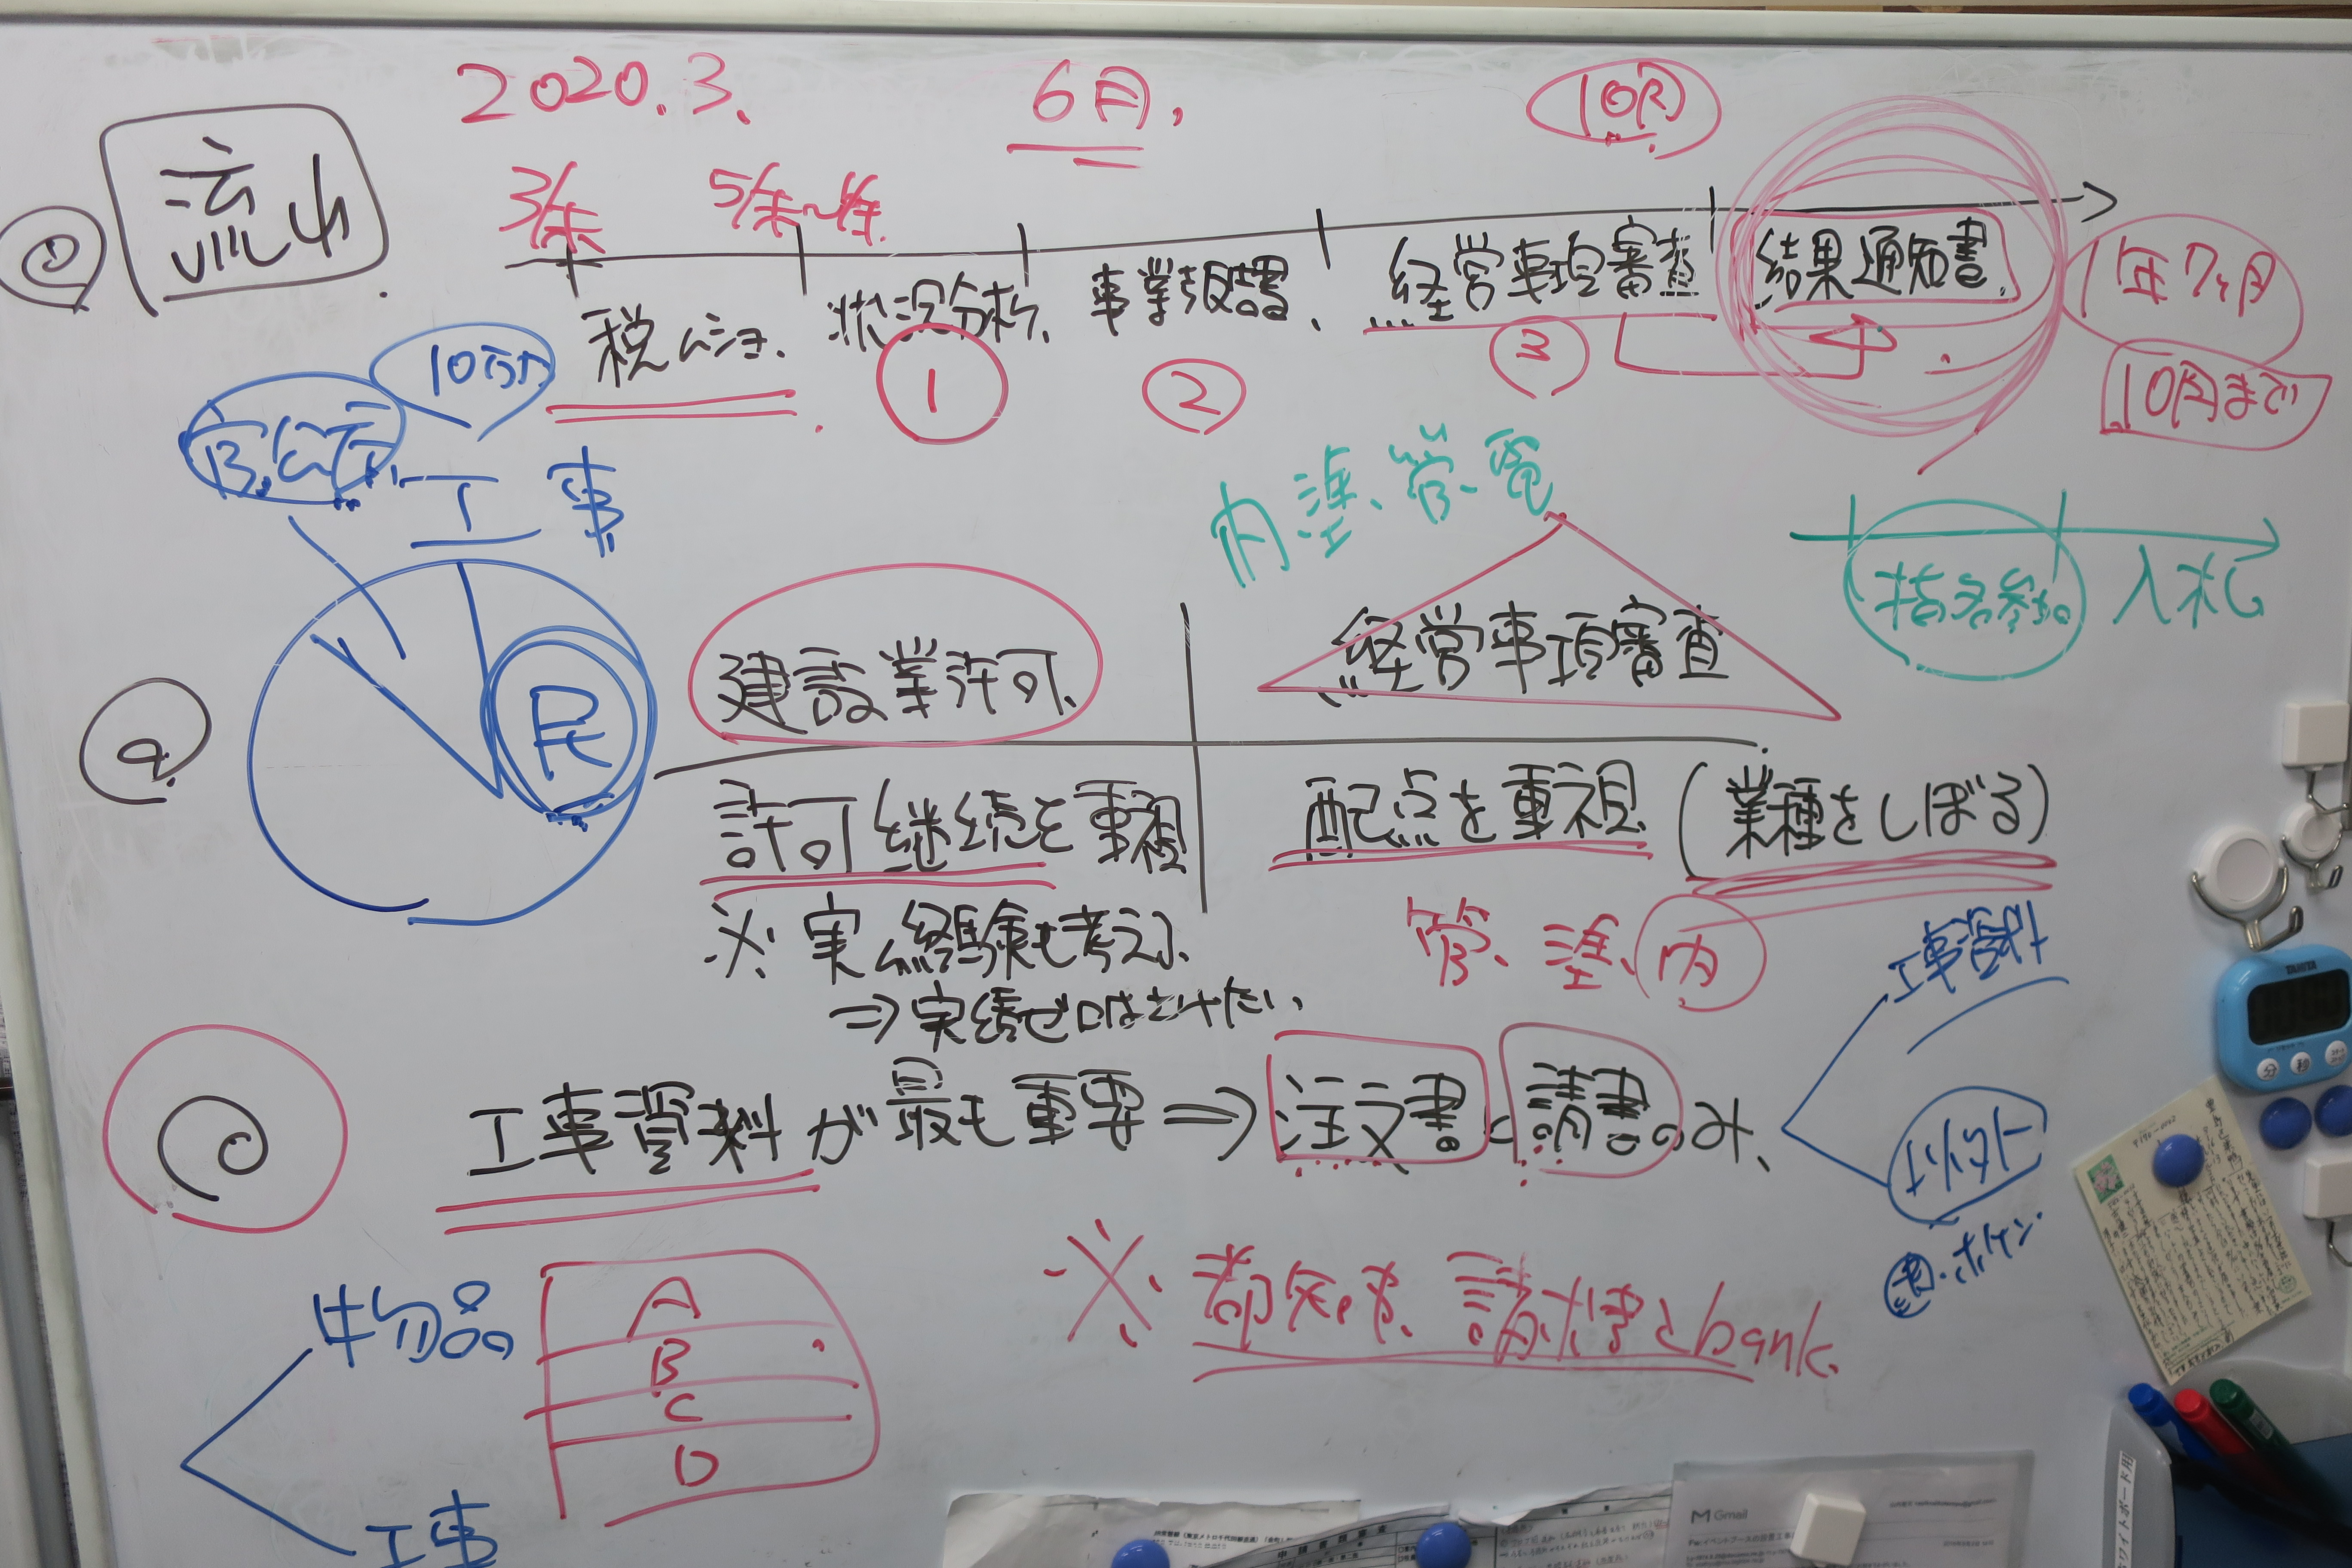 2020.3.
6月.
10月
流山
3/末
5/末〜
税ムショ、
状況分析、
事業報告書、
経営事項審査
結果通知書.
1年7ヶ月
10月まで
①
②
③
10万円
官公庁
工事
民
内、塗、管、電
指名参加
入札
建設業許可、
経営事項審査
許可継続を重視
配点を重視
(業種をしぼる)
※実ム経験も考える、
⇒実績ゼロはさけたい、
管、塗、内
工事資料が最も重要⇒注文書と請書のみ、
工事資料
物品
工事
A
B
C
D
※都知事、請求書とbank.
TANITA
分
秒
Gmail
ホワイトボード用